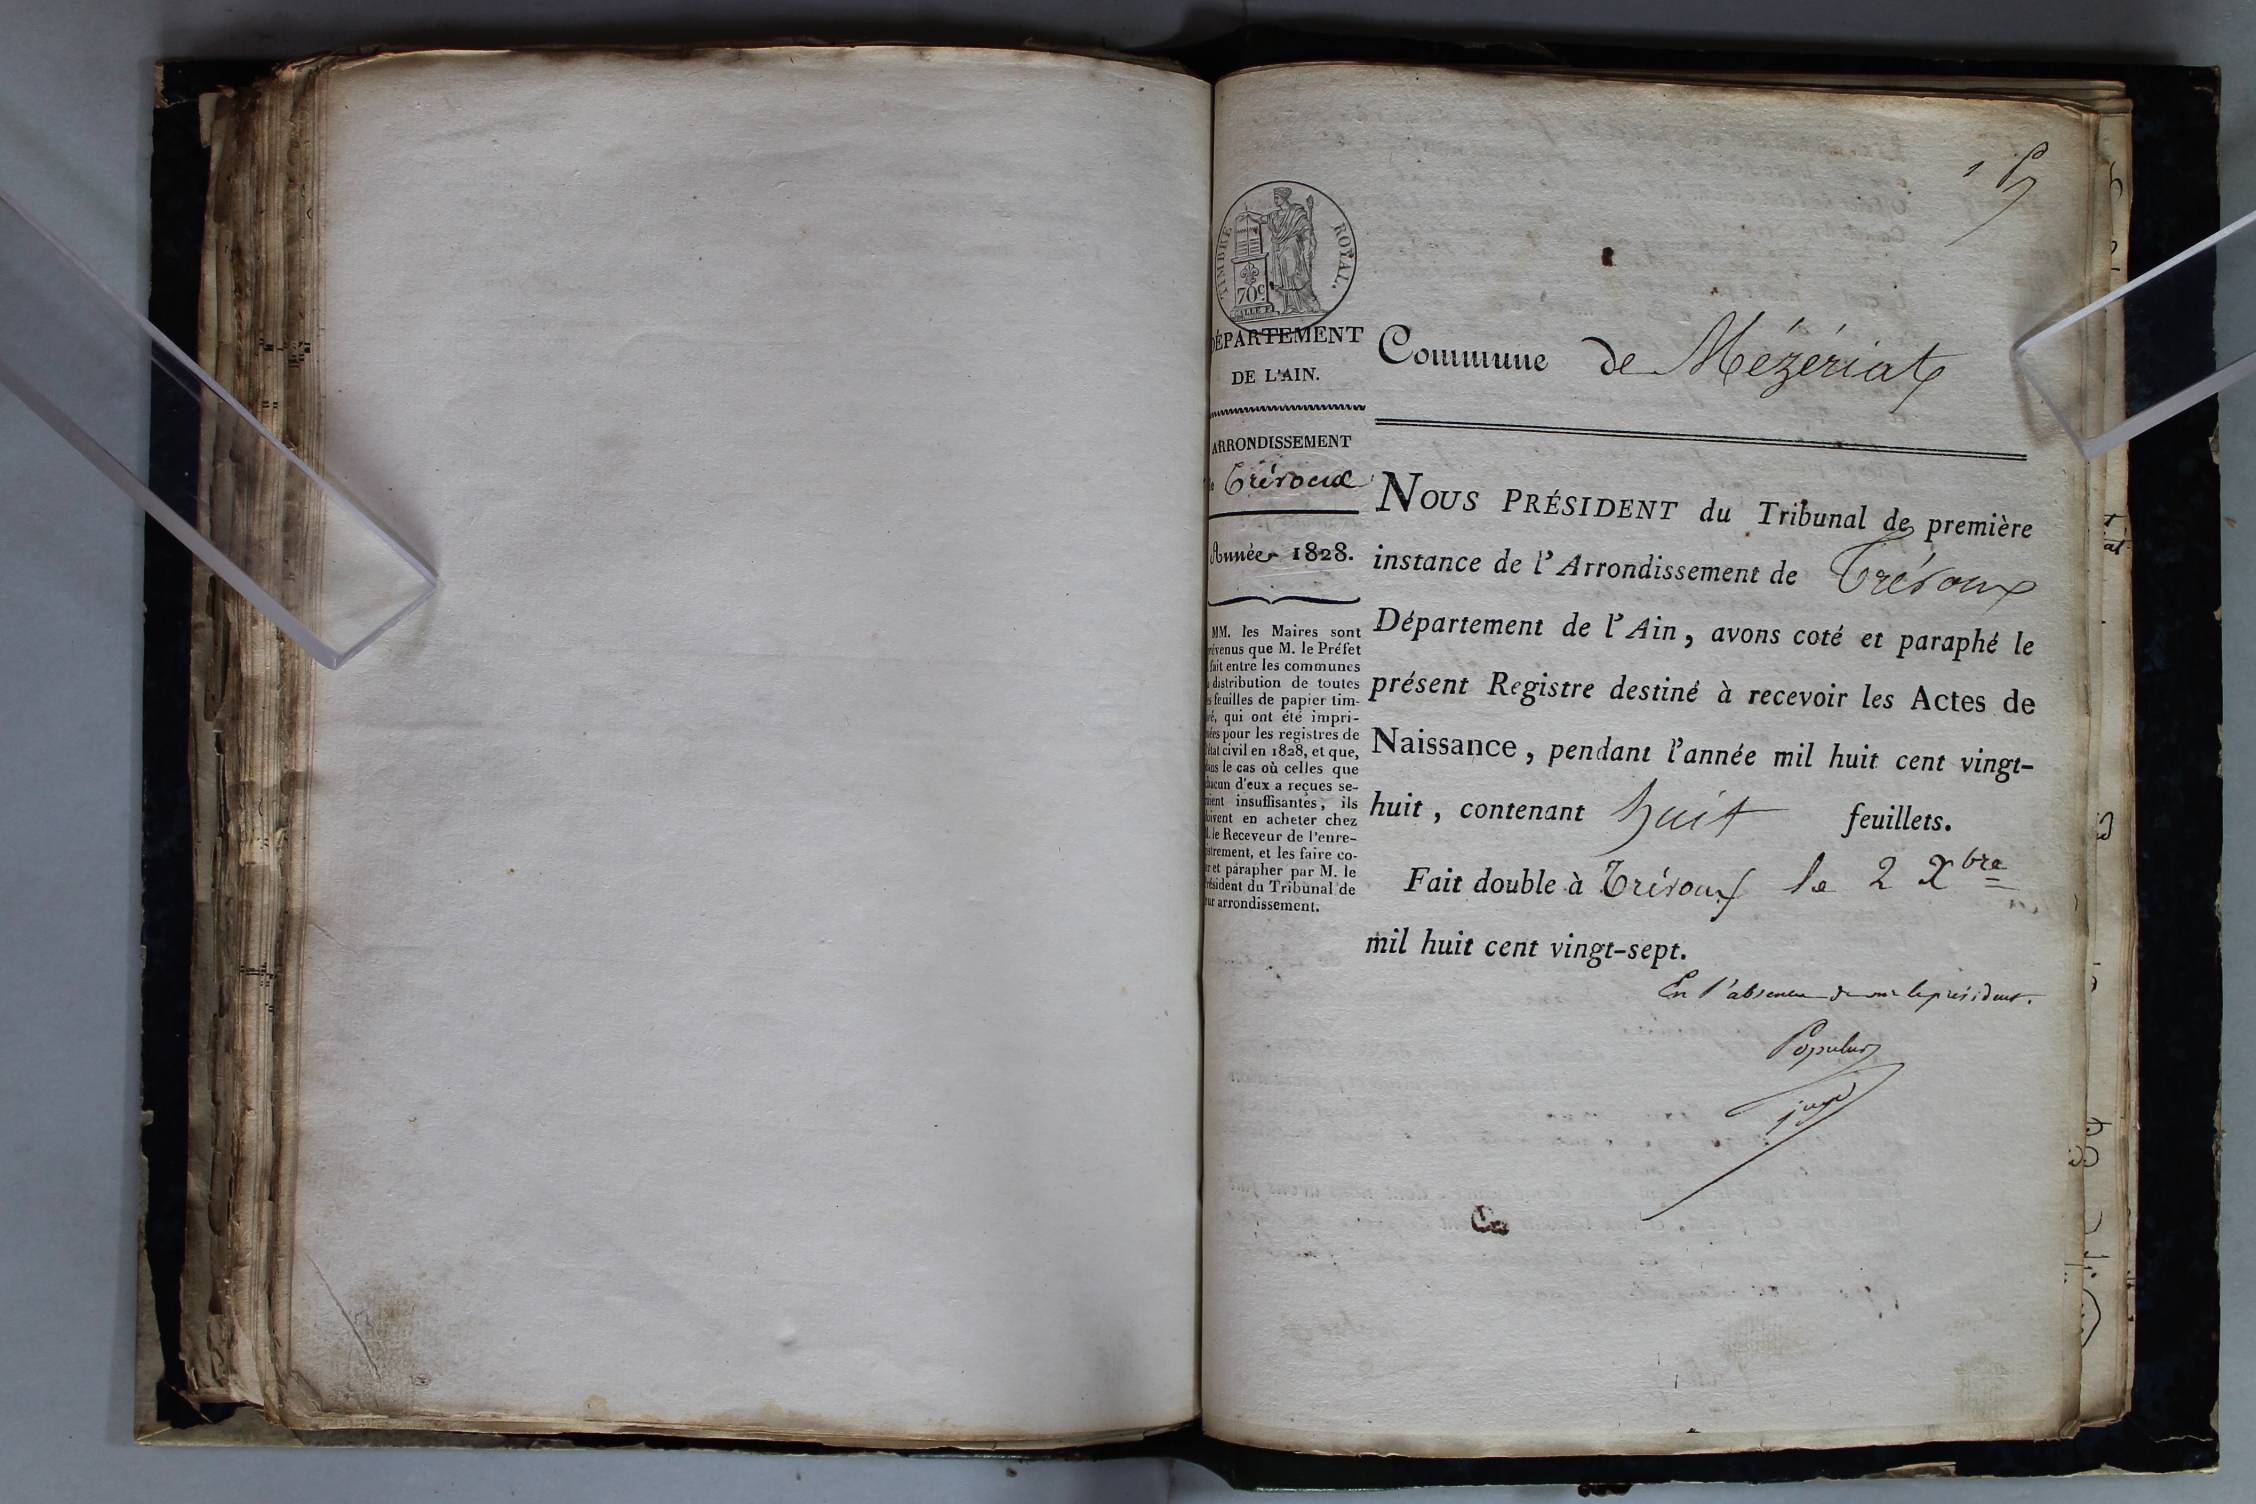 1
TIMBRE ROYAL.
70c
DÉPARTEMENT
DE L'AIN.
ARRONDISSEMENT
de Trévoux
Année 1828.
MM. les Maires sont
prévenus que M. le Préfet
fait entre les communes
la distribution de toutes
les feuilles de papier tim-
bré, qui ont été impri-
mées pour les registres de
l'état civil en 1828, et que,
dans le cas où celles que
chacun d'eux a reçues se-
raient insuffisantes, ils
doivent en acheter chez
M. le Receveur de l'enre-
gistrement, et les faire co-
ter et parapher par M. le
Président du Tribunal de
leur arrondissement.
Commune de Mézériat
NOUS PRÉSIDENT du Tribunal de première
instance de l'Arrondissement de Trévoux
Département de l'Ain, avons coté et paraphé le
présent Registre destiné à recevoir les Actes de
Naissance, pendant l'année mil huit cent vingt-
huit, contenant huit feuillets.
Fait double à Trévoux le 2 Xbre
mil huit cent vingt-sept.
En l'absence de mr le président.
Populus
juge